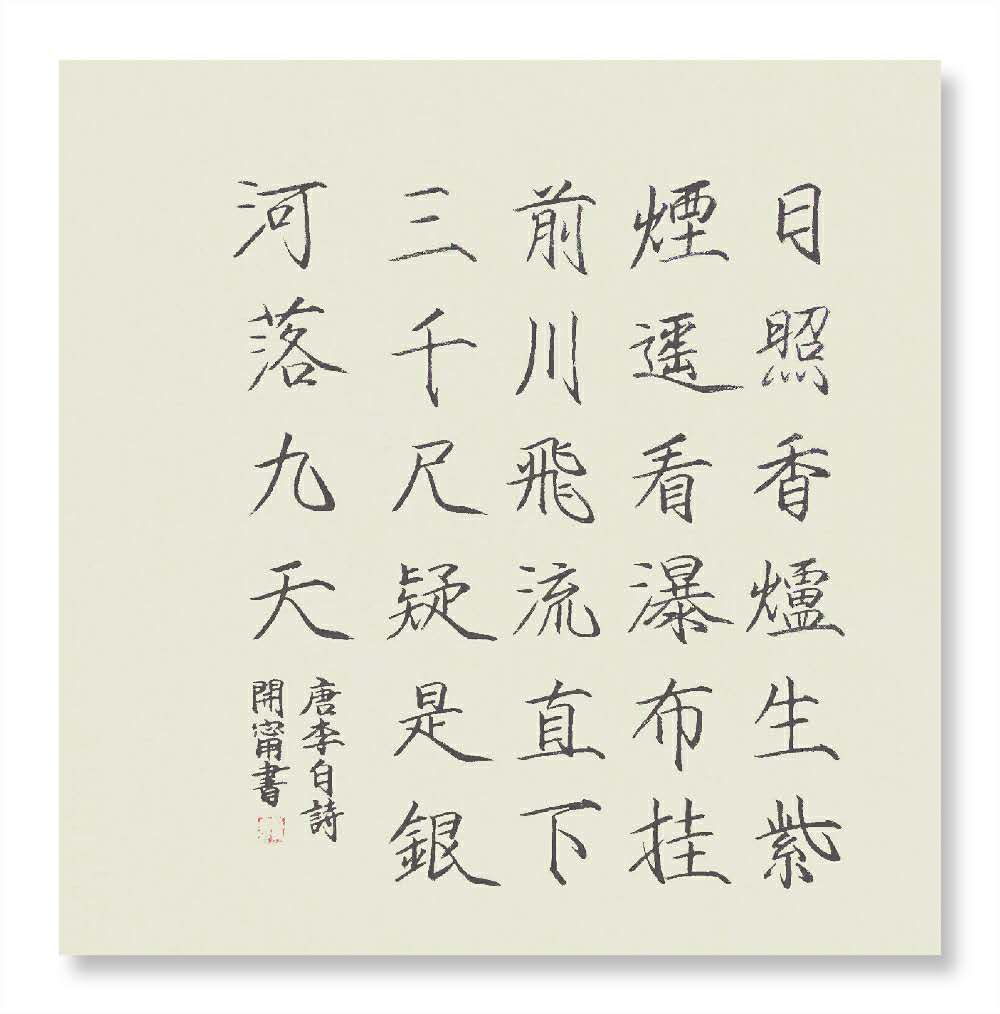 日照香爐生紫
煙遥看瀑布挂
前川飛流直下
三千尺疑是銀
河落九天
唐李白詩
開甯書